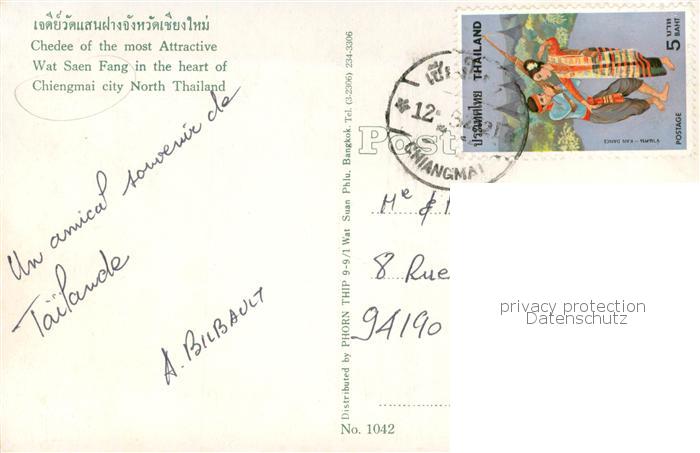 เจดีย์วัดแสนฝางจังหวัดเชียงใหม่
Chedee of the most Attractive
Wat Saen Fang in the heart of
Chiengmai city North Thailand
Un amical souvenir de
Taïlande
A. BILBAULT
Distributed by PHORN THIP 9-9/1 Wat Suan Phlu, Bangkok. Tel. (3-2306) 234-3306
No. 1042
Post
CHIANGMAI
12
ประเทศไทย THAILAND
5 บาท BAHT
POSTAGE
Me &
8 Rue
94190
privacy protection
Datenschutz